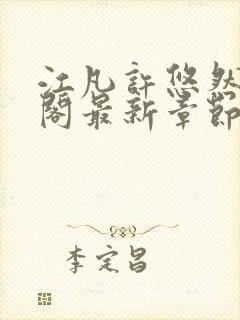 江凡許悠然
閣最新章節
李定昌